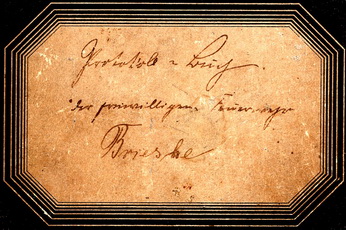 Protokoll = Buch.
der freiwilligen Feuerwehr
Brieske